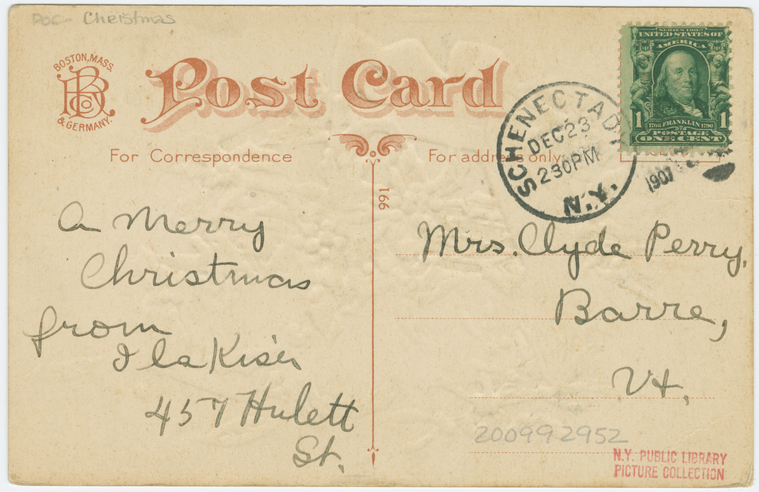 Doc- Christmas
BOSTON, MASS.
B Co
& GERMANY.
Post Card
For Correspondence
For address only.
SERIES 1902
UNITED STATES OF
AMERICA
1 FRANKLIN 1
POSTAGE
ONE CENT
SCHENECTADY
DEC 23
2 30 PM
N.Y.
1907
166
A Merry
Christmas
from
Ila Kiser
457 Hulett
St.
Mrs. Clyde Perry,
Barre,
Vt.
200992952
N.Y. PUBLIC LIBRARY
PICTURE COLLECTION